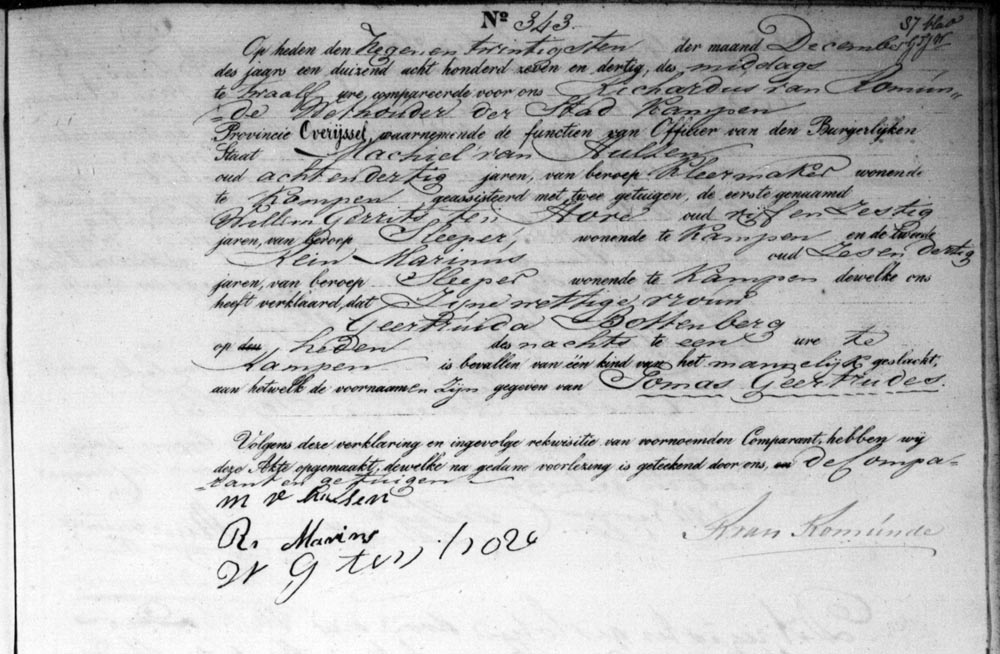 Nº 343.
Op heden den Negen en twintigsten der maand December
des jaars een duizend acht honderd zeven en dertig, des middags
te twaalf ure, compareerde voor ons Richardus van Romun„
„de Wethouder der Stad Kampen
Provincie Overijssel, waarnemende de functien van Officier van den Burgerlijken
Staat Machiel van Hulsen
oud acht en dertig jaren, van beroep Kleermaker wonende
te Kampen geassisteerd met twee getuigen, de eerste genaamd
Willem Gerrits ten Hove oud vijf en Zestig
jaren, van beroep Sleeper, wonende te Kampen en de tweede
Rein Marinus oud Zes en dertig
jaren, van beroep Sleeper wonende te Kampen dewelke ons
heeft verklaard, dat Zijne wettige vrouw
Geertruida Bottenberg
op den heden des nachts te een ure te
Kampen is bevallen van één kind van het mannelijk geslacht,
aan hetwelk de voornaamen Zijn gegeven van Tomas Geertrudes.
Volgens deze verklaring en ingevolge rekwisitie van voornoemden Comparant, hebben wij
deze Akte opgemaakt, dewelke na gedane voorlezing is geteekend door ons, en de Compa-
-rant en getuigen
m v Hulsen
R. Marins
W G ten
R van Romunde